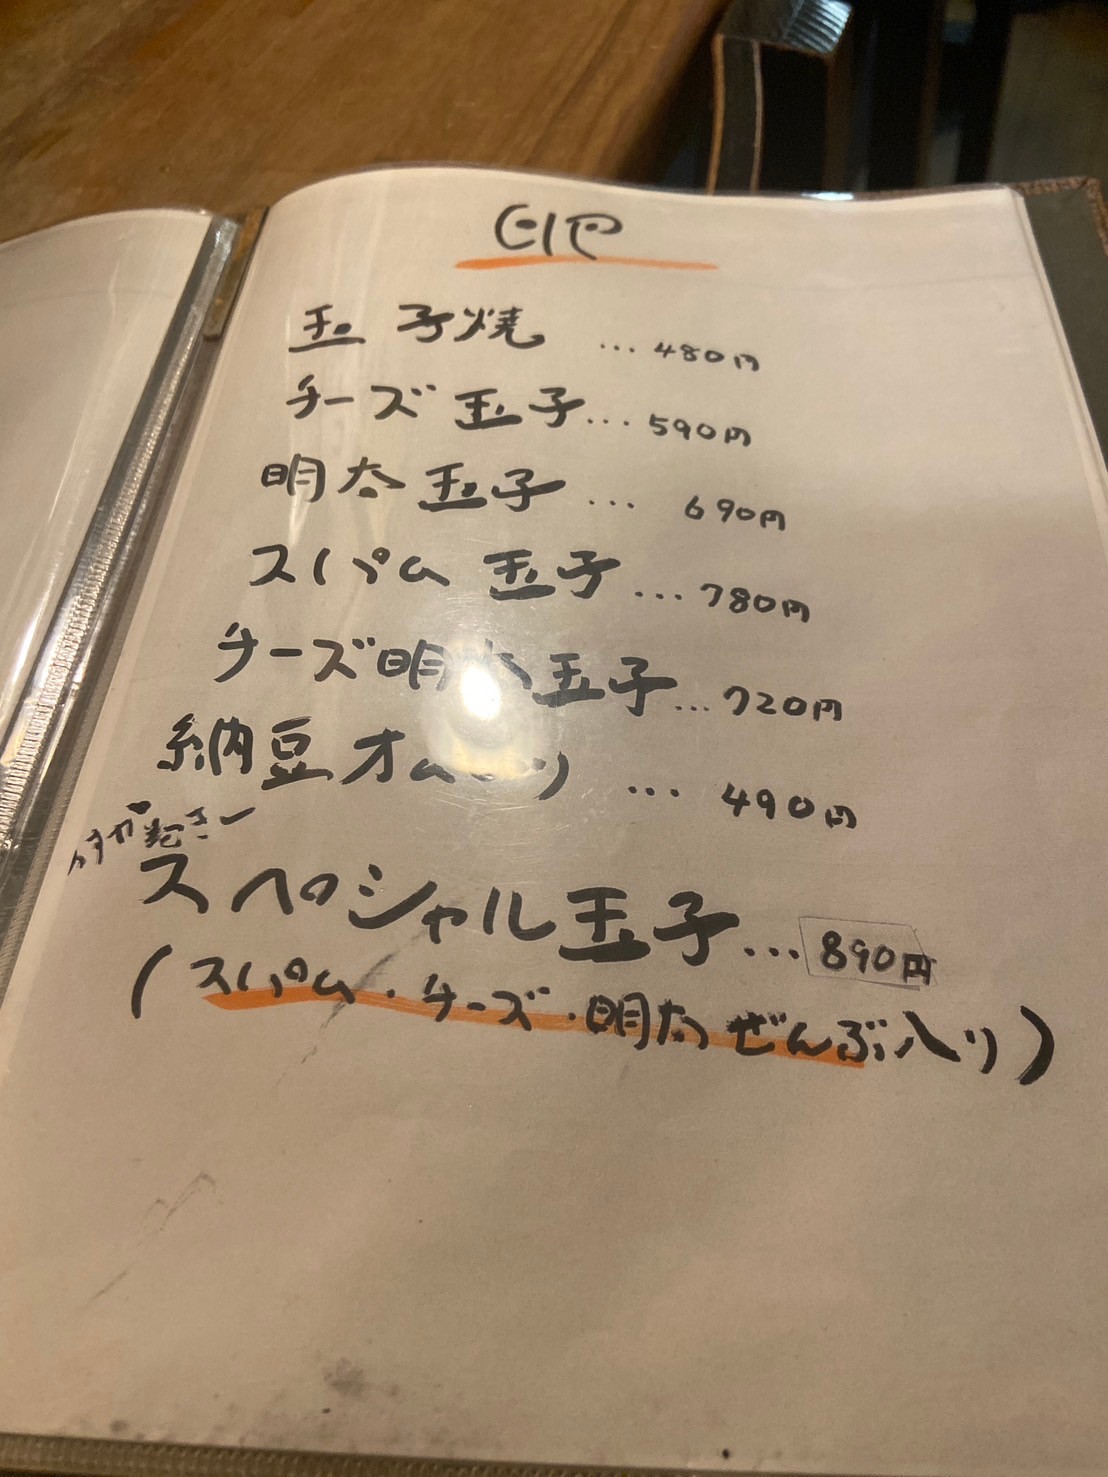 卵
玉子焼 ... 480円
チーズ玉子... 590円
明太玉子 ... 690円
スパム玉子... 780円
チーズ明太玉子... 720円
納豆オムレツ ... 490円
スペシャル玉子... 890円
(スパム・チーズ・明太ぜんぶ入り)